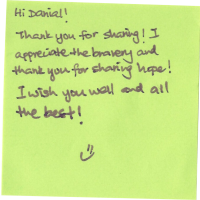 Hi Danial!
Thank you for sharing! I
appreciate the bravery and
thank you for sharing hope!
I wish you well and all
the best!